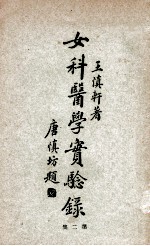 王慎軒著
女科醫學實驗錄
唐慎坊題
集二第